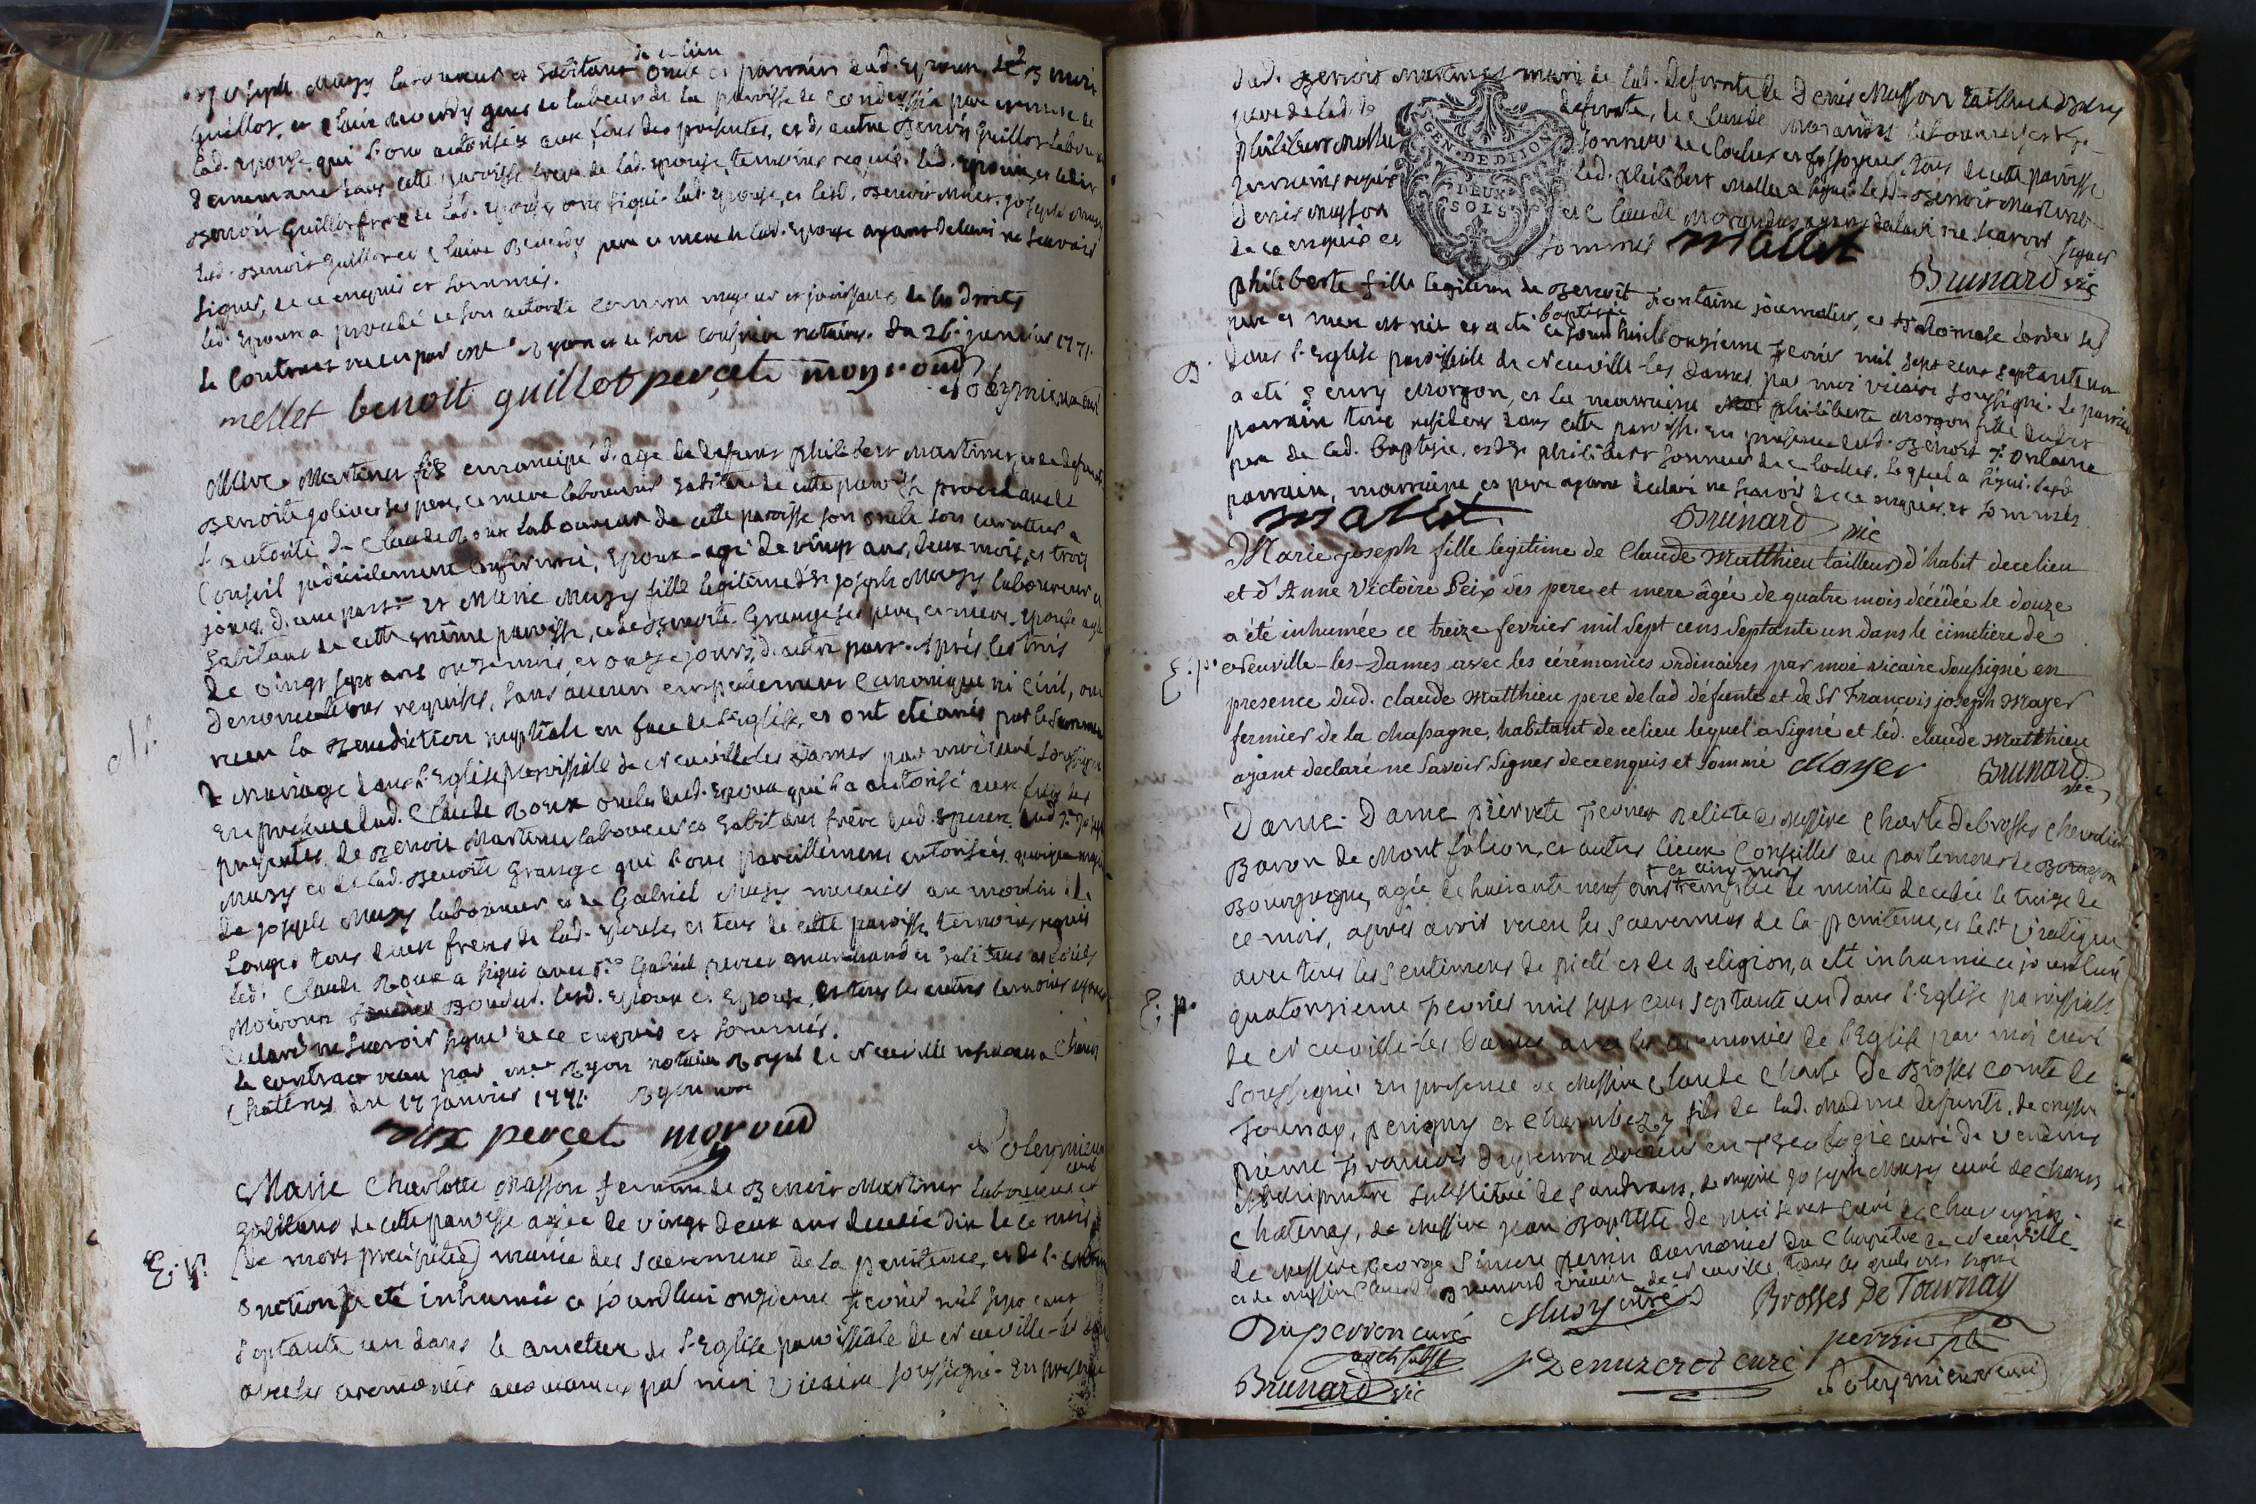 de ce lieu
joseph Muzy laboureur et habitant oncle et parrain dud. Epoux, de Benoit
Guillot, et Claire gens de labeur de la paroisse de Condessia pere et mere de
lad. Epouse qui l'ont autorisée aux fins des presentes, et d'autre Benoit Guillot laboureur
demeurant dans cette paroisse frere de lad. epouse, temoins requis. led. Epoux, et led.
Benoit Guillot frere de lad. Epouse ont signé. lad. Epouse, et lesd. joseph Muzy
led. Benoit Guillot et Claire pere et mere de lad. Epouse ayant declaré ne scavoir
signer, de ce enquis et sommés.
led. Epoux a procedé de son autorité comme majeur et jouissant de ses droits
le contrat recu par me Ryon et son confrere notaires. du 26 janvier 1771.
mellet benoit guillot perçet moyroud
Poleymieux curé
Martinet fils emancipé d'age de defunt philibert Martinet, et de defunte
Benoite goliver ses pere, et mere laboureur habitant de cette paroisse procedant de
l'autorité de Claude Roux laboureur de cette paroisse son oncle son curateur a
Conseil judiciairement confirmé, Epoux agé de vingt ans, deux mois, et trois
jours, d'une part et Marie Muzy fille legitime de joseph Muzy laboureur et
habitant de cette même paroisse, et de Benoite Grange ses pere, et mere, Epouse agée
de vingt sept ans onze mois, et onze jours, d'autre part. Après les trois
denonciations requises, sans aucun empechement Canonique ni Civil, ont
recu la Benediction nuptiale en face de l'Eglise, et ont été unis par le Sacrement
de Mariage dans l'Eglise paroissiale de Neuville les Dames par moi curé soussigné
En presence dud. Claude Roux oncle dud. Epoux qui l'a autorisé aux fins des
presentes, de Benoit Martinet laboureur et habitant frère dud. Epoux, dud. joseph
Muzy et de lad. Benoite Grange qui l'ont pareillement autorisée, quoique majeure
de joseph Muzy laboureur et de Gabriel Muzy meunier au moulin de
Longes tous deux freres de lad. Epouse, et tous de cette paroisse temoins requis
led. Claude Roux a signé avec Sr Gabriel percet marchand et habitant
Moiroux Boudet. lesd. Epoux et Epouse, et tous les autres temoins ayant
declaré ne scavoir signer de ce enquis et sommés.
le contract recu par me Ryon notaire Royal de Neuville a Chanoz
Chatenay du 17 janvier 1771. Ryon nore
roux perçet moyroud
Poleymieux
curé
Marie Charlotte Masson femme de Benoit Martinet laboureur et
habitant de cette paroisse agée de vingt deux ans decedée dix de ce mois
E. p.
(de mort precipitée) munie des Sacremens de la penitence, et de l'extreme
onction a eté inhumée ce jourdhui onzieme fevrier mil sept cent
septante un dans le cimetiere de l'Eglise paroissiale de Neuville-les Dames
avec les ceremonies accoutumées par moi Vicaire soussigné - En presence
dud. Benoit Martinet mari de lad. defunte de Denis Masson tailleur d'habits
pere de lad. defunte, de Claude Morandas laboureur et de
philibert Mallet sonneur de cloches et fossoyeur, tous de cette paroisse
temoins requis led. philibert Mallet a signé lesd. Benoit Martinet
Denis Masson et Claude Morandas ayant declaré ne scavoir signer
de ce enquis et sommés mallet
GEN. DE DIJON
DEUX
SOLS
Brunard vic
philiberte fille legitime de Benoit fontaine journalier, et
pere et mere est née et a eté baptisée ce jourdhui onzieme fevrier mil sept cent septante un
B.
dans l'Eglise paroissiale de Neuville-les Dames par moi vicaire soussigné. Le parrain
a eté henry Morgon, et la marraine philiberte Morgon fille dudit
parrain tous residens dans cette paroisse. En presence dud. Benoit fontaine
pere de lad. baptisée, et de philibert sonneur de cloches. lequel a signé. lesd
parrain, marraine et pere ayant declaré ne scavoir de ce enquis, et sommés.
mallet Brunard vic
Marie joseph fille legitime de Claude Matthieu tailleur d'habit decelieu
et d'Anne Victoire Peix ses pere et mere âgée de quatre mois décédée le douze
a été inhumée ce treize fevrier mil Sept cens Septante un dans le cimetiere de
E. p.
Neuville-les-Dames avec les cérémonies ordinaires par moi vicaire Soussigné en
presence dud. claude Matthieu pere de lad défunte et de Sr François joseph Mayer
fermier de la chassagne, habitant de celieu lequel a Signé et led. claude Matthieu
ayant declaré ne Savoir Signer de ce enquis et Sommé Mayer Brunard
vic
Dame - Dame pierrete fevret Relicte de Messire Charle Debrosses Chevalier
Baron de Montfalcon, et autres lieux Conseiller au parlement de
et cinq mois
Bourgogne, agée de huitante neuf ans remplie de merite decedée le treize de
ce mois, après avoir recu les Sacremens de la penitence, et le St Viatique
avec tous les sentimens de pieté et de Religion, a eté inhumée ce jourdhui
E. p.
quatorzieme fevrier mil sept cent septante un dans l'Eglise paroissiale
de Neuville-les Dames avec les ceremonies de l'Eglise par moi curé
soussigné En presence de Messire Claude Charle De Brosses Comte de
Tournay, perigny et Chambezy fils de lad. Madame defunte, de messire
pierre françois duperron docteur en Theologie curé de
Archipretre substitué de Sandrans, de messire joseph Muzy curé de Chanoz
Chatenay, de Messire jean Baptiste de curé de Chaveyriat
de Messire George Simeon perrin aumonier du Chapitre de Neuville
et de messire Claude Brunard vicaire de Neuville, tous les quels ont signé
Duperron curé Muzy curé Brosses De Tournay
arch subst perrin
Brunard vic Demuzeret curé Poleymieux curé